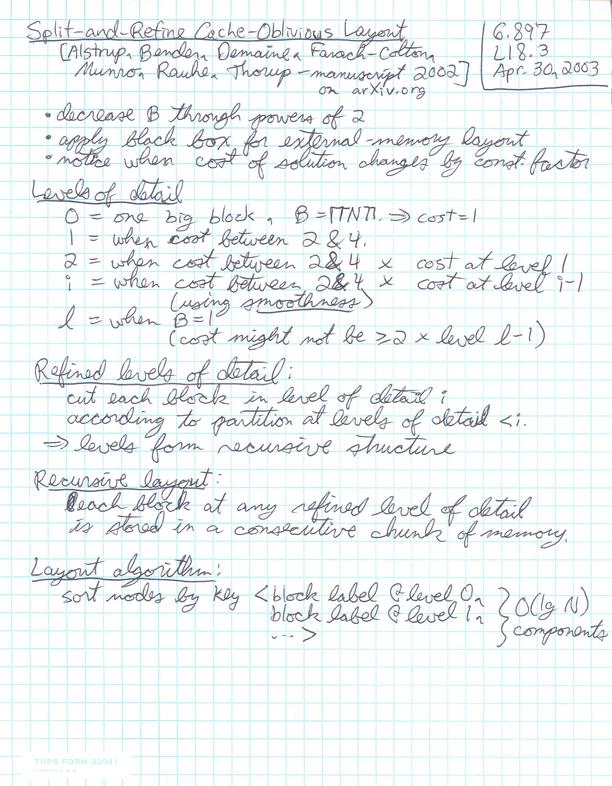 Split-and-Refine Cache-Oblivious Layout
[Alstrup, Bender, Demaine, Farach-Colton,
Munro, Rauhe, Thorup - manuscript 2002]
on arXiv.org
6.897
L18.3
Apr. 30, 2003
• decrease B through powers of 2
• apply black box for external-memory layout
• notice when cost of solution changes by const. factor
Levels of detail
0 = one big block, B = ⌈⌈N⌉⌉. ⇒ cost=1
1 = when cost between 2 & 4.
2 = when cost between 2 & 4 × cost at level 1
i = when cost between 2 & 4 × cost at level i-1
(using smoothness)
l = when B=1
(cost might not be ≥ 2 × level l-1)
Refined levels of detail:
cut each block in level of detail i
according to partition at levels of detail < i.
⇒ levels form recursive structure
Recursive layout:
each block at any refined level of detail
is stored in a consecutive chunk of memory.
Layout algorithm:
sort nodes by key <block label @ level 0,
block label @ level 1,
...>
} O(lg N)
components
TOPS FORM 3304